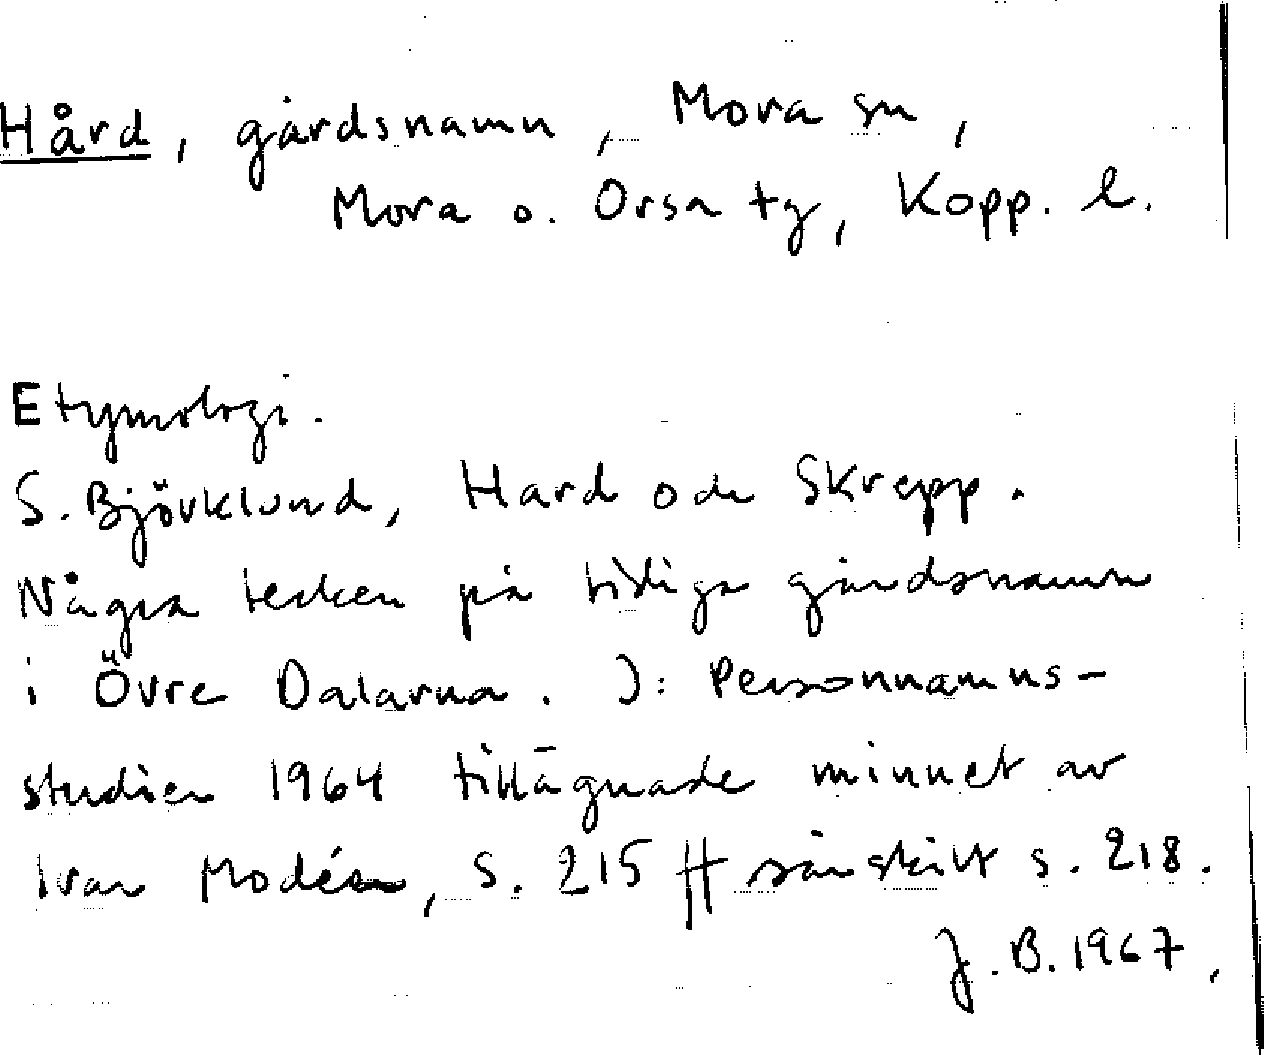 Hård, gårdsnamn, Mora sn,
Mora o. Orsa tg, Kopp. l.
Etymologi.
S. Björklund, Hard och Skrepp.
Några tecken på tidiga gårdsnamn
i Övre Dalarna. I: Personnamns-
studier 1964 tillägnade minnet av
Ivar Modéer, S. 215 ff särskilt s. 218.
J. B. 1967.